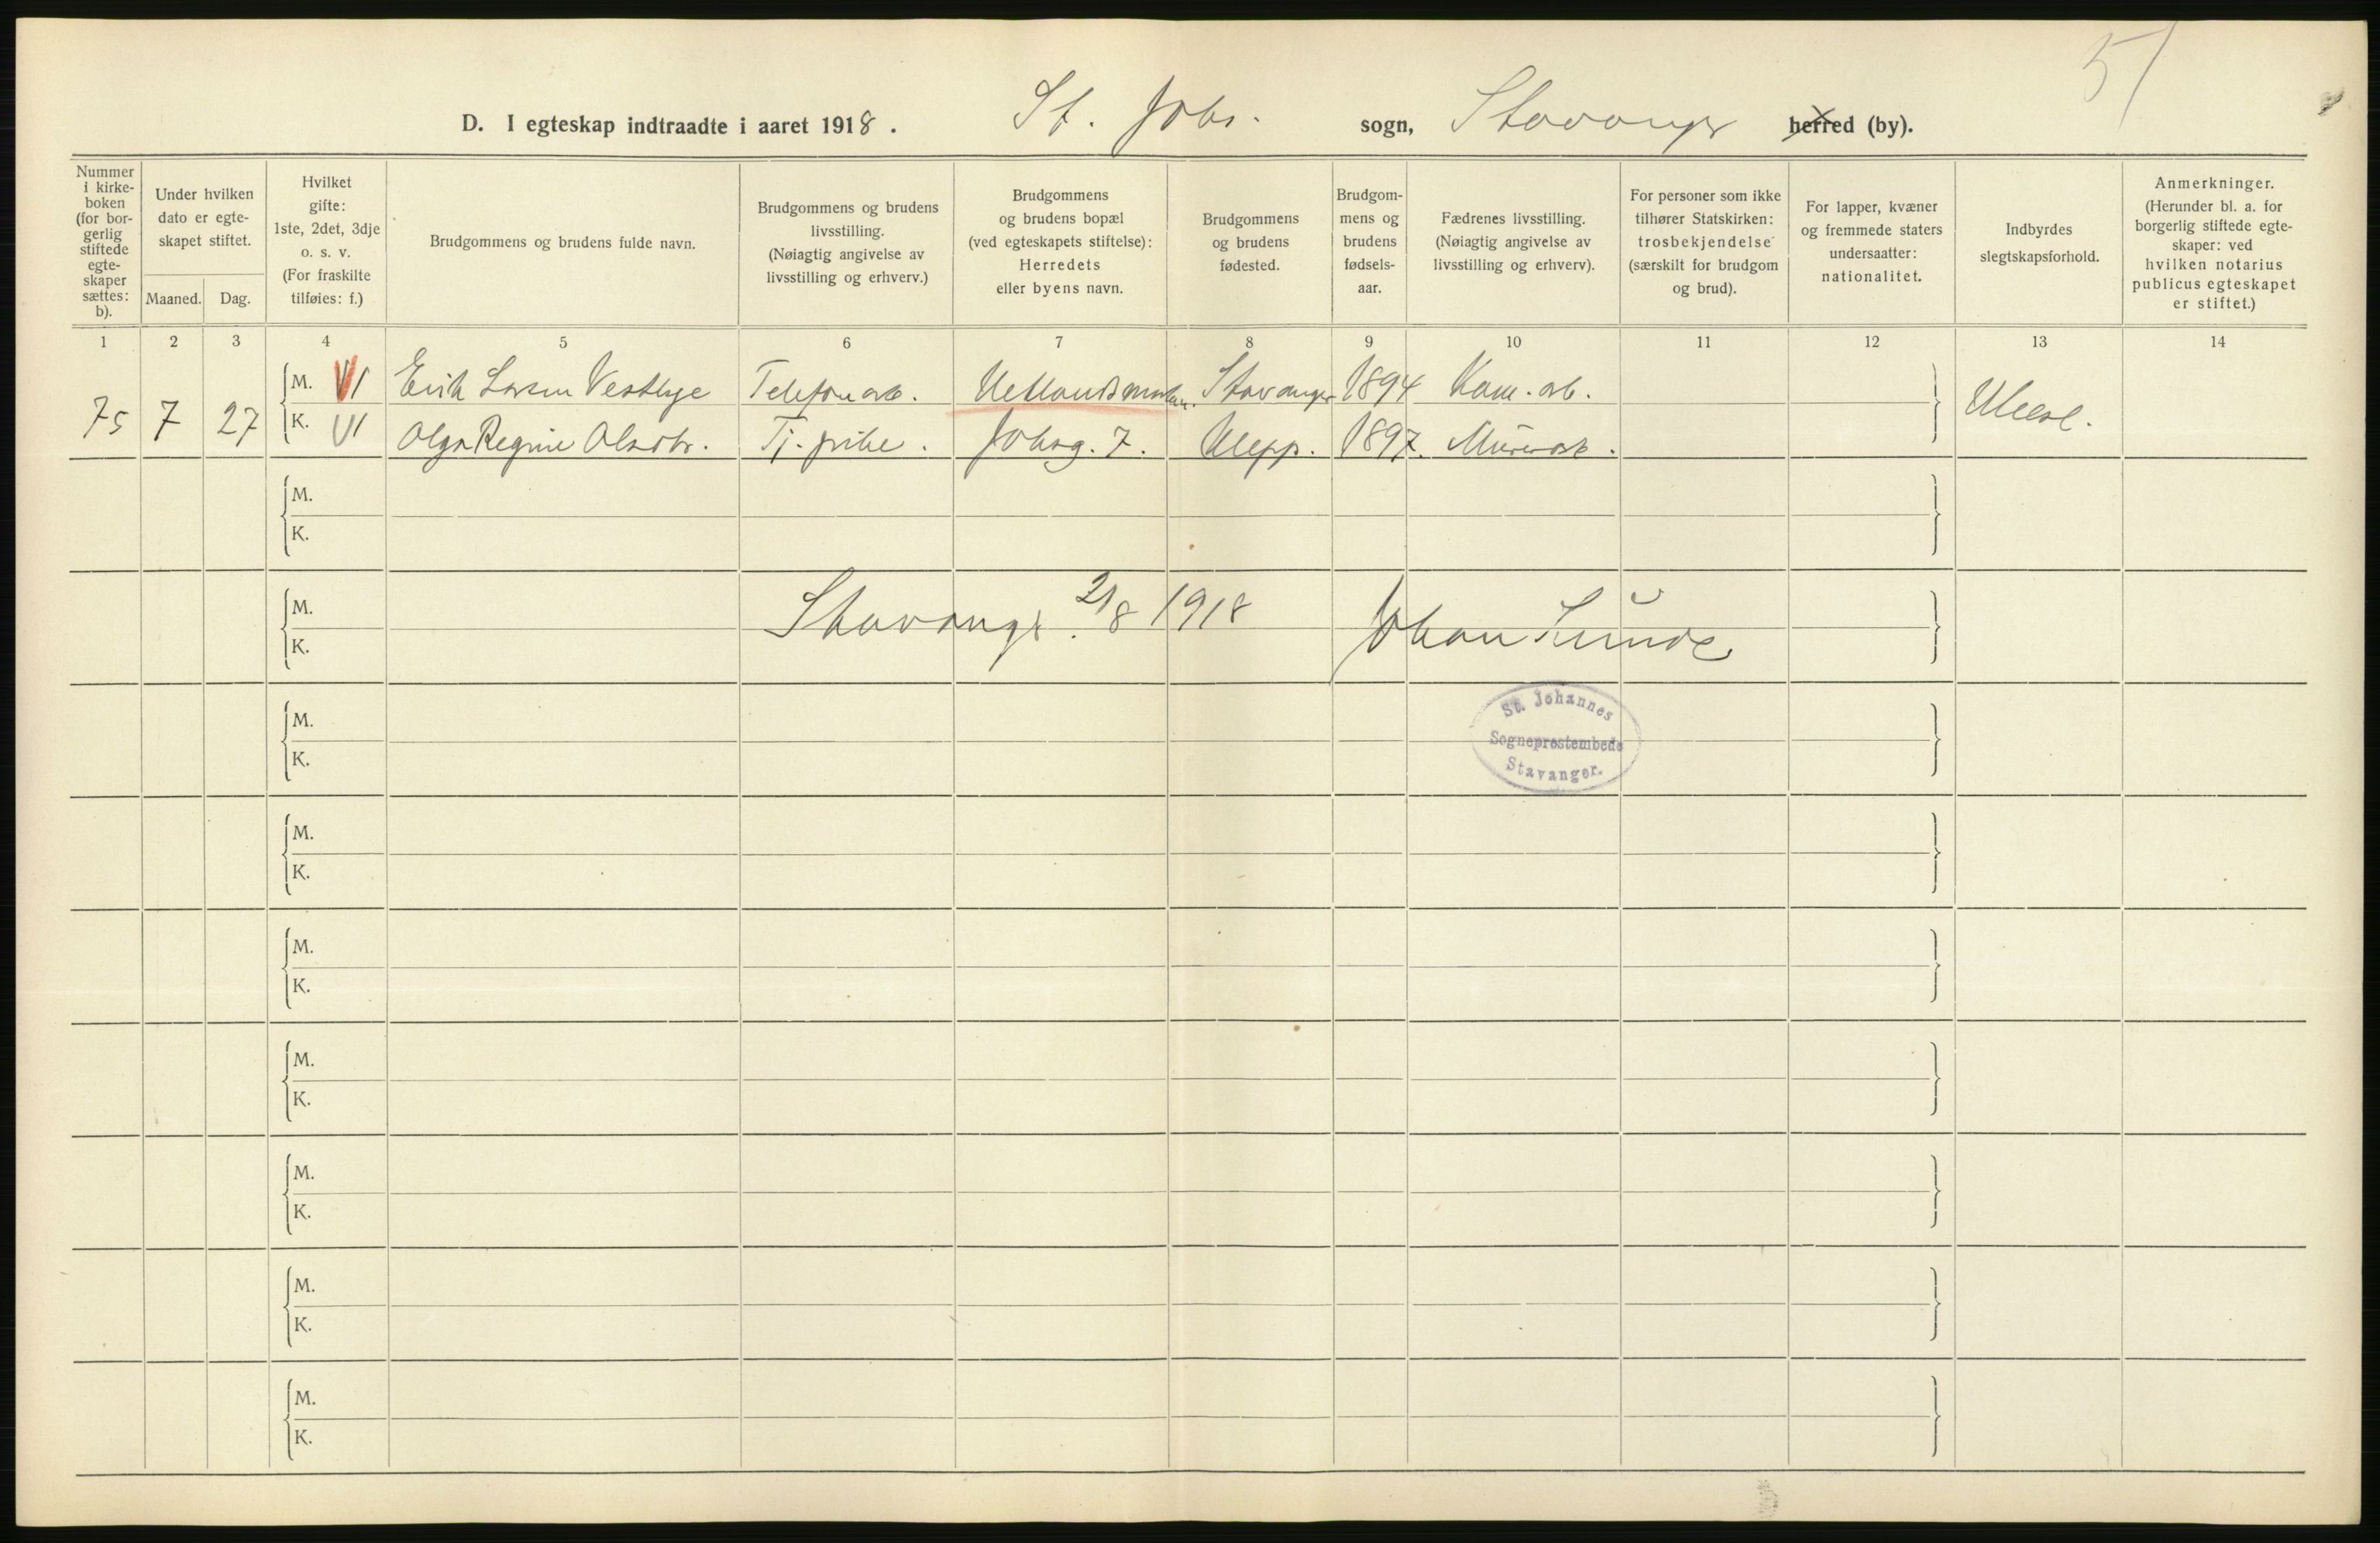 51
D. I egteskap indtraadte i aaret 1918. St. Johs. sogn, Stavanger herred (by).
Nummer i kirke-boken (for bor-gerlig stiftede egte-skaper sættes: b).
Under hvilken dato er egte-skapet stiftet.
Maaned. Dag.
Hvilket gifte: 1ste, 2det, 3dje o. s. v. (For fraskilte tilføies: f.)
Brudgommens og brudens fulde navn.
Brudgommens og brudens livsstilling. (Nøiagtig angivelse av livsstilling og erhverv.)
Brudgommens og brudens bopæl (ved egteskapets stiftelse): Herredets eller byens navn.
Brudgommens og brudens fødested.
Brudgom-mens og brudens fødsels-aar.
Fædrenes livsstilling. (Nøiagtig angivelse av livsstilling og erhverv).
For personer som ikke tilhører Statskirken: trosbekjendelse (særskilt for brudgom og brud).
For lapper, kvæner og fremmede staters undersaatter: nationalitet.
Indbyrdes slegtskapsforhold.
Anmerkninger. (Herunder bl. a. for borgerlig stiftede egte-skaper: ved hvilken notarius publicus egteskapet er stiftet.)
1 2 3 4 5 6 7 8 9 10 11 12 13 14
75 7 27 M. Erik Larsen Vestbye Telefonarb. Stavanger 1894 Kom. arb. Ubesl.
K. Olga Regine Olsdtr. Tj.pike. Johsg. 7. Klepp. 1897.
M.
K.
M.
Stavanger 21/8 1918 Johan Lunde
K.
M.
St. Johannes
Sogneprestembede
Stavanger.
K.
M.
K.
M.
K.
M.
K.
M.
K.
M.
K.
M.
K.